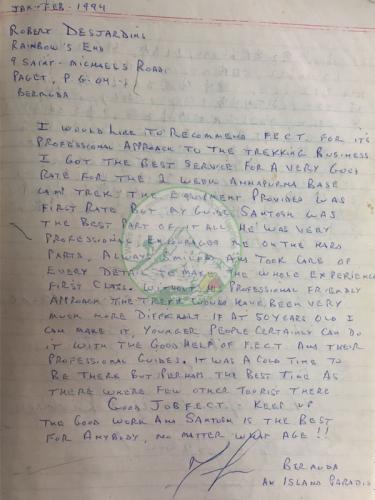 JAN-FEB-1994
ROBERT DESJARDINS
RAINBOW'S END
9 SAINT-MICHAELS ROAD
PAGET, P G-04
BERMUDA
I WOULD LIKE TO RECOMMEND F.E.C.T. FOR IT'S
PROFESSIONAL APPROACH TO THE TREKKING BUSINESS
I GOT THE BEST SERVICE FOR A VERY GOOD
RATE FOR THE 2 WEEK ANNAPURNA BASE
CAMP TREK. THE EQUIPMENT PROVIDED WAS
FIRST RATE BUT MY GUIDE SANTOSH WAS
THE BEST PART OF IT ALL. HE WAS VERY
PROFESSIONAL ENCOURAGED ME ON THE HARD
PARTS, ALWAYS SMILED AND TOOK CARE OF
EVERY DETAIL TO MAKE THE WHOLE EXPERIENCE
FIRST CLASS. WITHOUT HIS PROFESSIONAL FRIENDLY
APPROACH THE TREK WOULD HAVE BEEN VERY
MUCH MORE DIFFERENT. IF AT 50 YEARS OLD I
CAN MAKE IT, YOUNGER PEOPLE CERTAINLY CAN DO
IT WITH THE GOOD HELP OF F.E.C.T AND THEIR
PROFESSIONAL GUIDES. IT WAS A COLD TIME TO
BE THERE BUT PERHAPS THE BEST TIME AS
THERE WHERE FEW OTHER TOURIST THERE
GOOD JOB F.E.C.T. - KEEP UP
THE GOOD WORK AND SANTOSH IS THE BEST
FOR ANYBODY, NO MATTER WHAT AGE !!
BERMUDA
AN ISLAND PARADIS